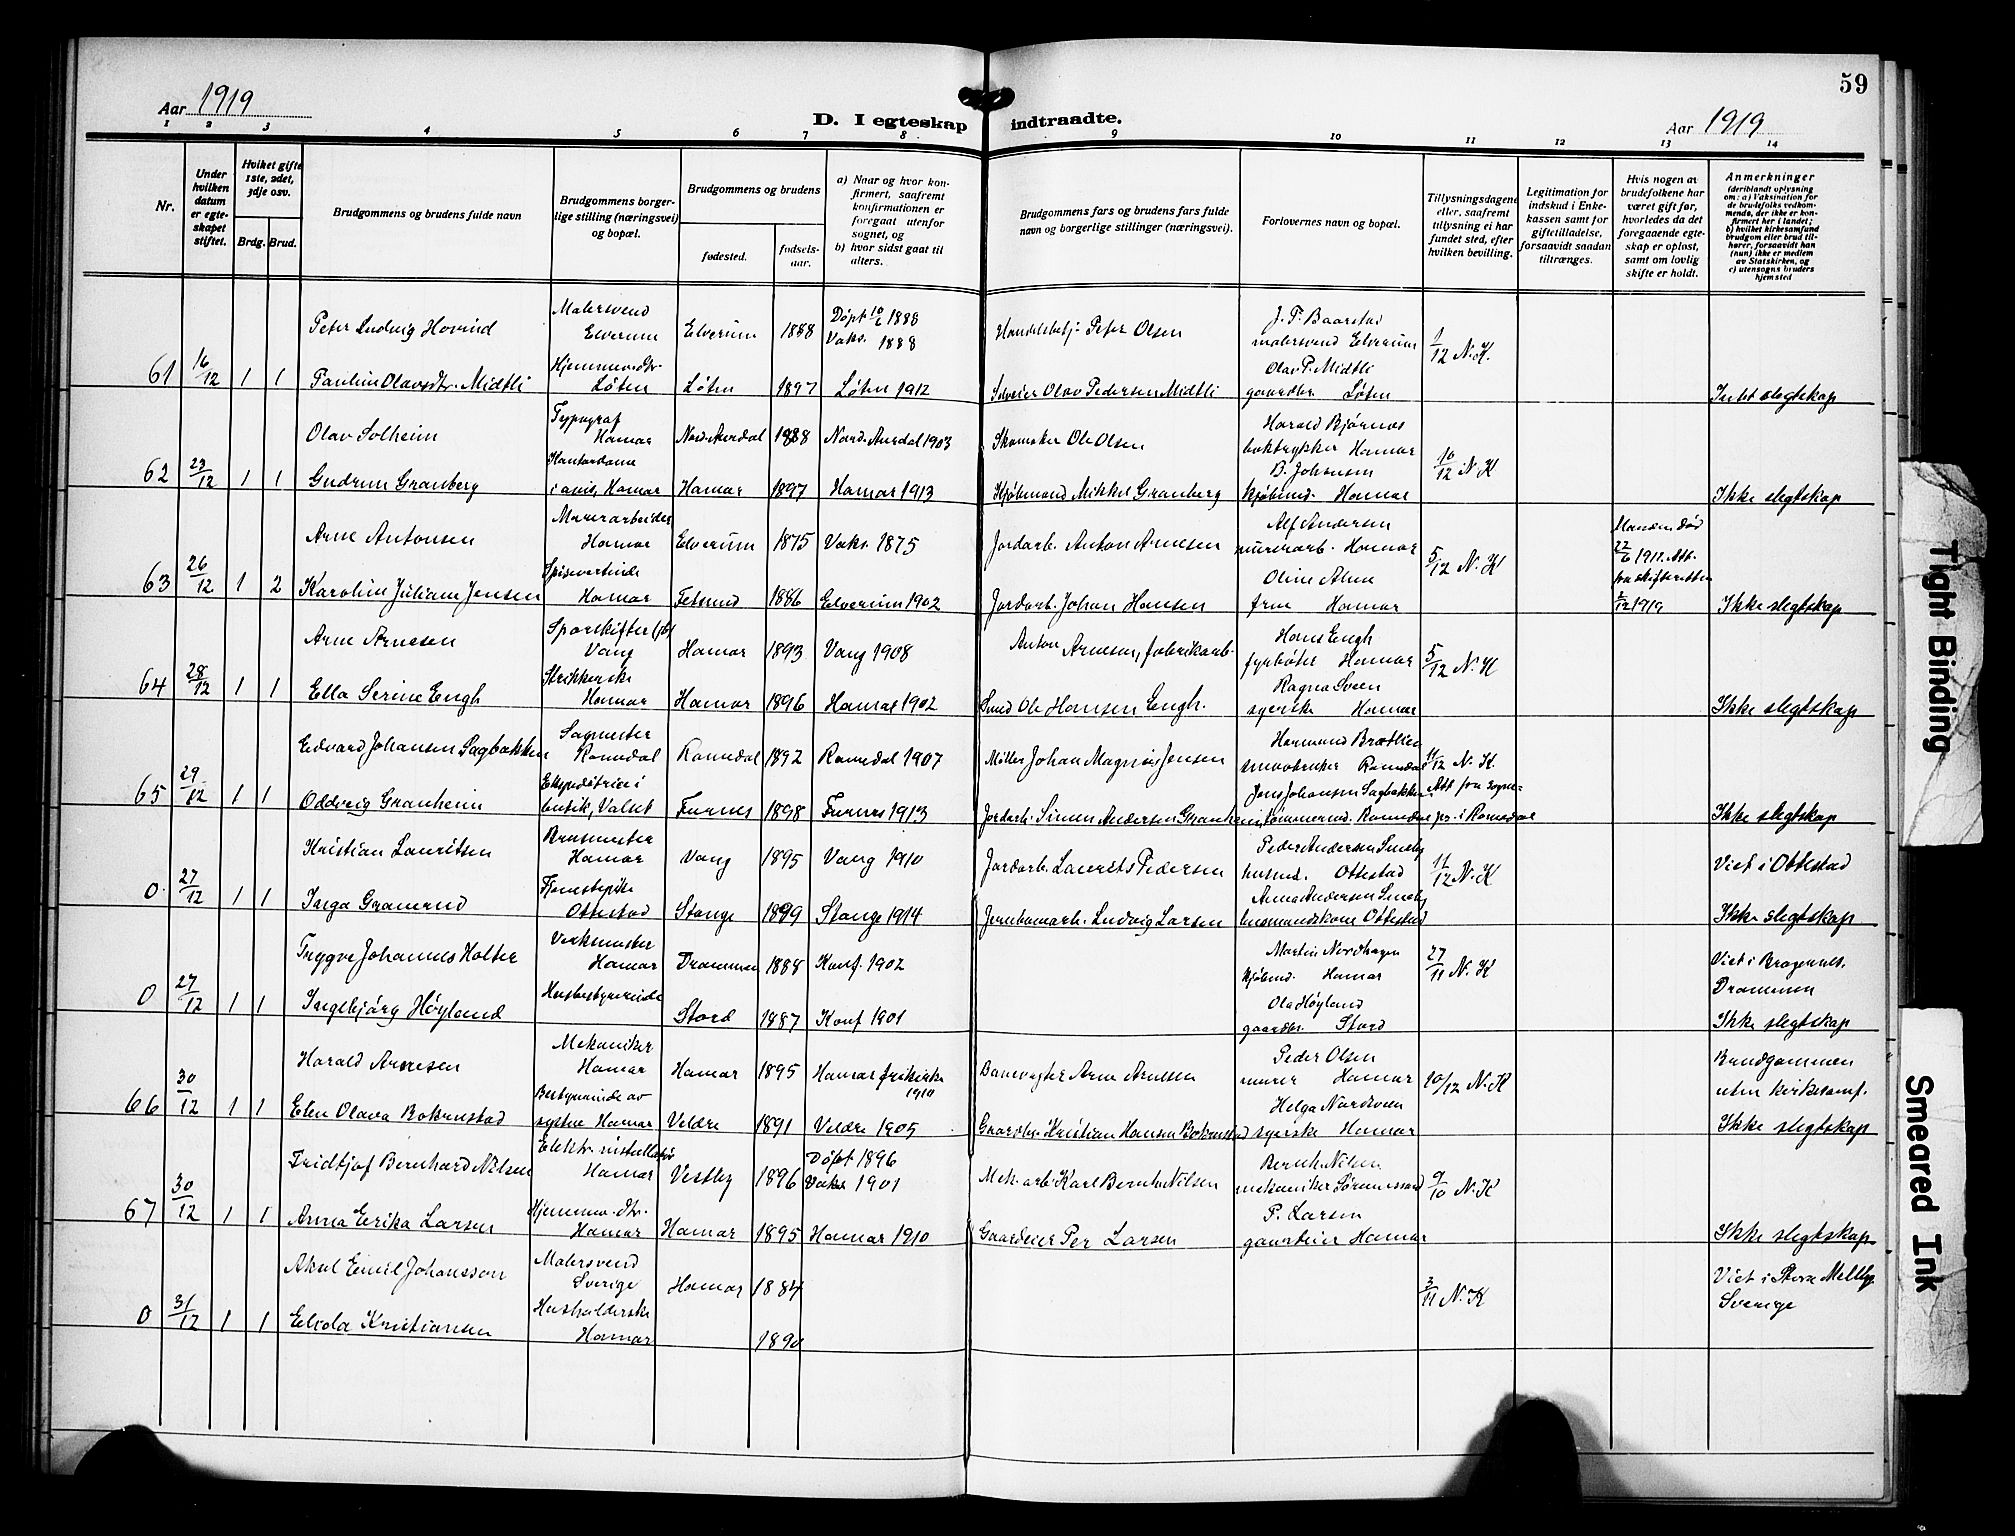 59
Aar 1919
D. I egteskap indtraadte.
Aar 1919
1 2 3 4 5 6 7 8 9 10 11 12 13 14
Nr.
Under hvilken datum er egteskapet stiftet.
Hviket gifte 1ste, 2det, 3dje osv.
Brdg. Brud.
Brudgommens og brudens fulde navn
Brudgommens borgerlige stilling (næringsvei) og bopæl.
Brudgommens og brudens
fødested.
fødselsaar.
a) Naar og hvor konfirmert, saafremt konfirmationen er foregaat utenfor sognet, og
b) hvor sidst gaat til alters.
Brudgommens fars og brudens fars fulde navn og borgerlige stillinger (næringsvei).
Forlovernes navn og bopæl.
Tillysningsdagene eller, saafremt tillysning ei har fundet sted, efter hvilken bevilling.
Legitimation for indskud i Enkekassen samt for giftetilladelse, forsaavidt saadan tiltrænges.
Hvis nogen av brudefolkene har været gift før, hvorledes da det foregaaende egteskap er opløst, samt om lovlig skifte er holdt.
Anmerkninger
(deriblandt oplysning om: a) Vaksination for de brudefolks vedkommende, der ikke er konfirmert her i landet; b) hvilket kirkesamfund brudgom eller brud tilhører, forsaavidt han (hun) ikke er medlem av Statskirken, og c) utensogns bruders hjemsted
Peter Ludvig Hovind Malersvend Elverum Elverum 1888 Døpt 10/6 1888 Vaks. 1888 Handelsbetj. Peter Olsen J. P. Baarstad malersvend Elverum 1/12 N. K.
61 16/12 1 1 Pauline Olavsdtr. Midtli Hjemmev. dtr. Løten Løten 1897 Løten 1912 Selveier Olav Pedersen Midtli Olav P. Midtli gaardbr. Løten Intet slegtskap
Olav Solheim Typograf Hamar Nord. Aurdal 1888 Nord. Aurdal 1903 Skomaker Ole Olsen Harald Bjørnos boktrykker Hamar 10/12 N. K
62 23/12 1 1 Gudrun Granberg Kontordame i avis, Hamar Hamar 1897 Hamar 1913 Kjøbmand Mikkel Granberg B. Johansen kjøbmd. Hamar Ikke slegtskap
Arne Antonsen Murerarbeider Hamar Elverum 1875 Vaks. 1875 Jordarb. Anton Arnesen Alf Andersen murerarb. Hamar 5/12 N. K Manden død 22/6 1911. Att. fra skifteretten 2/12 1919
63 26/12 1 2 Karoline Juliane Jensen Spisevertinde Hamar Fetsund 1886 Elverum 1902 Jordarb. Johan Hansen Oline Alme frue Hamar Ikke slegtskap
Arne Arnesen Sporskifter (jb) Vang Hamar 1893 Vang 1908 Anton Arnesen, fabrikarb. Hans Engh fyrbøter Hamar 5/12 N. K
64 28/12 1 1 Ella Serine Engh Strikkerske Hamar Hamar 1896 Hamar 1902 Smed Ole Hansen Engh. Ragna Sveen syerske Hamar Ikke slegtskap
Edvard Johansen Sagbakken Sagmester Romedal Romedal 1892 Romedal 1907 Møller Johan Magnus Jensen Hermand Brætlien smaabruker Romedal 11/12 N. K. Att fra sognepr. i Romedal
65 29/12 1 1 Oddveig Granheim Ekspeditrice i butik, Valset Furnes 1898 Furnes 1913 Jordarb. Simen Andersen Granheim Jens Johansen Sagbakken tømmermd. Romedal Ikke slegtskap
Kristian Lauritsen Brusmester Hamar Vang 1895 Vang 1910 Jordarb. Laurits Pedersen Peder Andersen Smeby husmd. Ottestad 11/12 N. K Viet i Ottestad
0 27/12 1 1 Inga Gramrud Tjenestepike Ottestad Stange 1899 Stange 1914 Jernbanearb. Ludvig Larsen Anna Andersen Smeby husmandskone Ottestad Ikke slegtskap
Tryggve Johannes Holter Verksmester Hamar Drammen 1888 Konf. 1902 Martin Nordhagen kjøbmd. Hamar 27/11 N. K Viet i Bragernes. Drammen
0 27/12 1 1 Ingebjørg Høyland Husbestyrerinde Stord 1887 Konf 1901 Ola Høyland gaardbr. Stord Ikke slegtskap
Harald Arnesen Mekaniker Hamar Hamar 1895 Hamar frikirke 1910 Banevogter Arne Arnesen Peder Olsen murer Hamar 10/12 N. K Brudgommen uten kirkesamf.
66 30/12 1 1 Elen Olava Bokenstad Bestyrerinde av systue Hamar Veldre 1891 Veldre 1905 Gaardbr. Kristian Hansen Bokenstad Helga Nordsveen syerske Hamar Ikke slegtskap
Fridtjof Bernhard Nilsen Elektr. installatør Hamar Vestby 1896 Døpt 1896 Vaks 1901 Mek. arb. Karl Bernh. Nilsen Bernh. Nilsen mekaniker Sørumssand 9/10 N. K
67 30/12 1 1 Anna Erika Larsen Hjemmev. dtr. Hamar Hamar 1895 Hamar 1910 Gaardeier Per Larsen P. Larsen gaardeier Hamar Ikke slegtskap
Aksel Emil Johansson Malersvend Sverige Hamar 1884 3/11 N. K Viet i Stora Mellby Sverige
0 31/12 1 1 Elida Kristiansen Husholderske Hamar 1890
Tight Binding
Smeared Ink